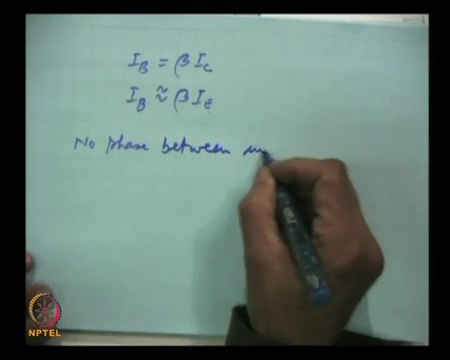 I_B = β I_C
I_B ≈ β I_E
No phase between
NPTEL